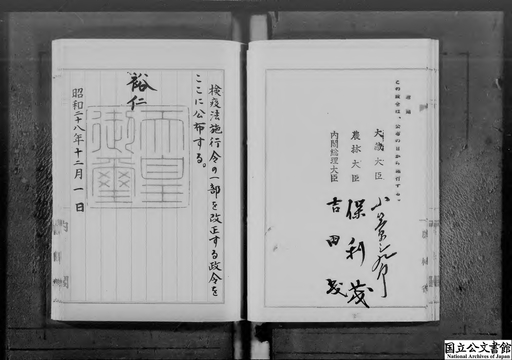 附則
この政令は、公布の日から施行する。
大蔵大臣 小笠原三九郎
農林大臣 保利茂
内閣総理大臣 吉田茂
検疫法施行令の一部を改正する政令を
ここに公布する。
裕仁
天皇
御璽
昭和二十八年十二月一日
国立公文書館
National Archives of Japan